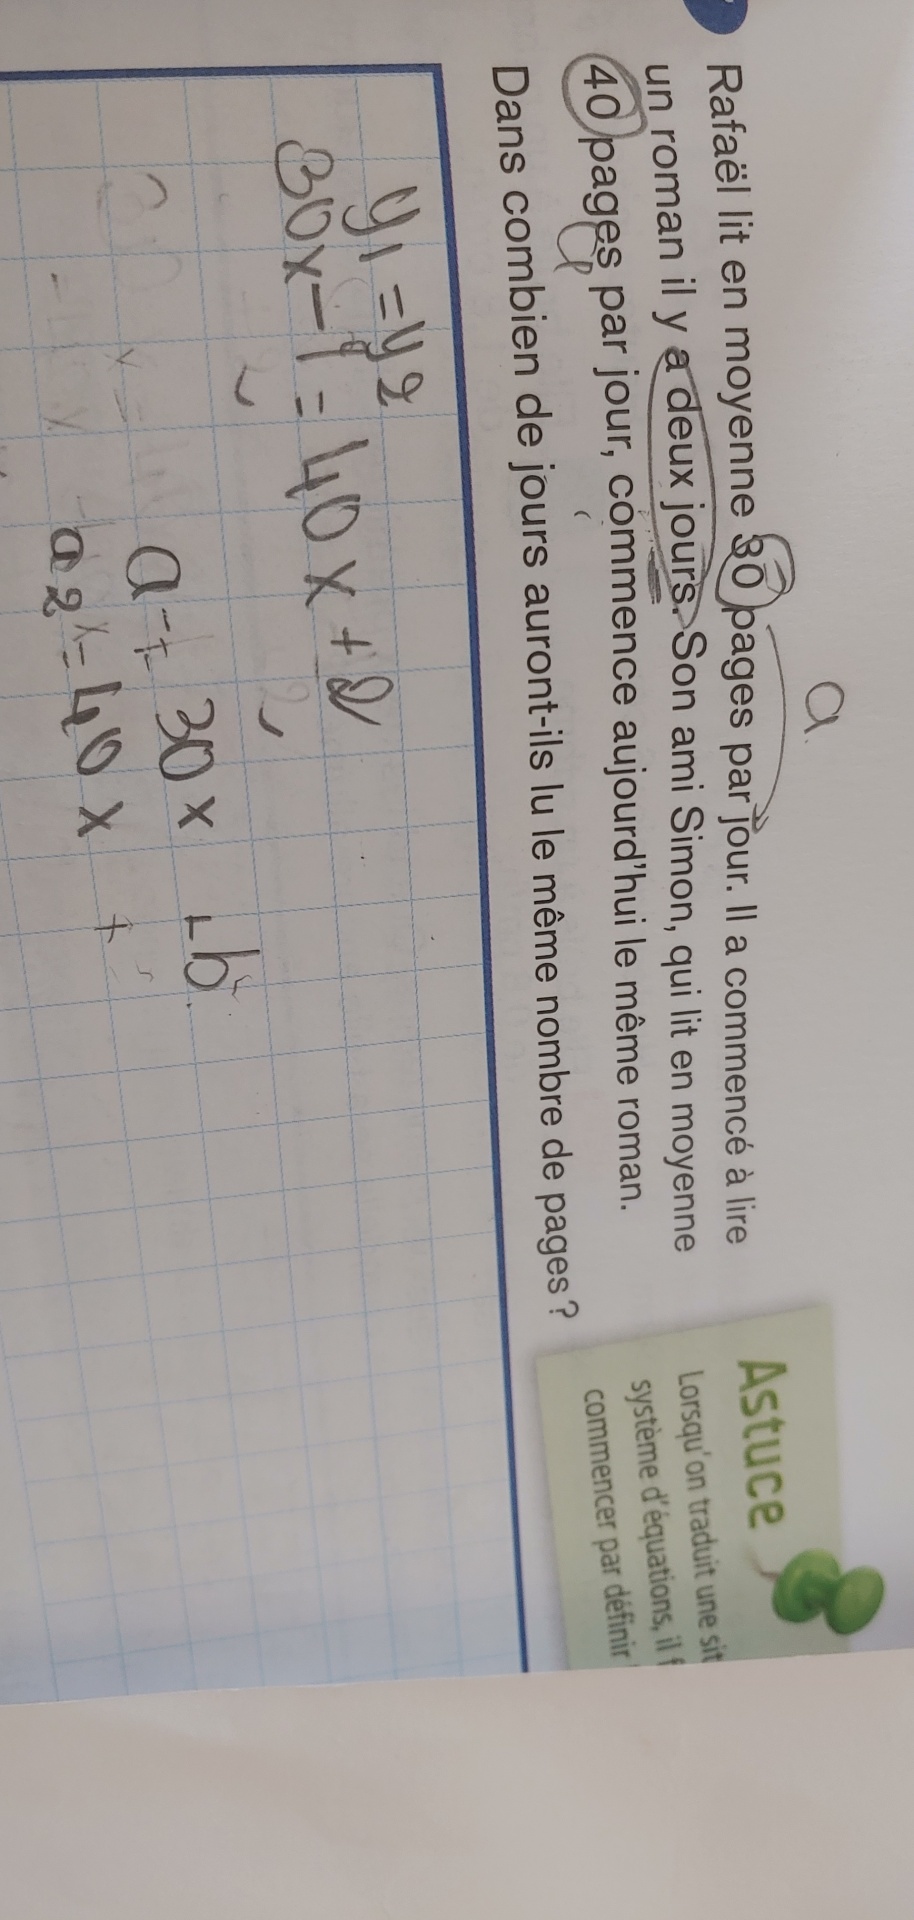 a.
Rafaël lit en moyenne 30 pages par jour. Il a commencé à lire
un roman il y a deux jours. Son ami Simon, qui lit en moyenne
40 pages par jour, commence aujourd'hui le même roman.
Dans combien de jours auront-ils lu le même nombre de pages ?
Astuce
Lorsqu'on traduit une sit
système d'équations, il f
commencer par définir
y1 = y2
30x - 1 = 40x + 2
a = 30x + b
a2 = 40x +